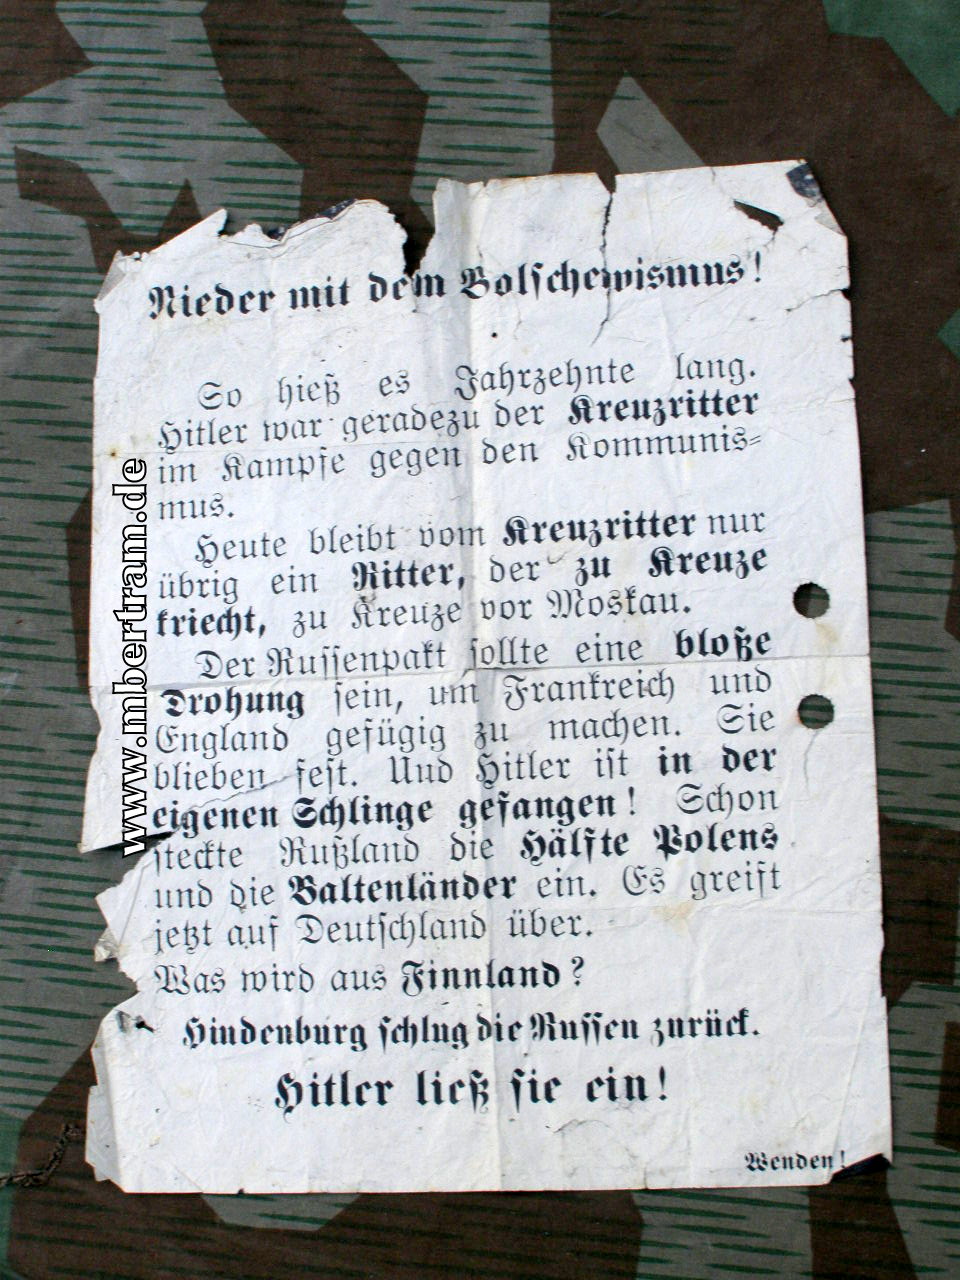 Nieder mit dem Bolschewismus!
So hieß es Jahrzehnte lang.
Hitler war geradezu der Kreuzritter
im Kampfe gegen den Kommunis-
mus.
Heute bleibt vom Kreuzritter nur
übrig ein Ritter, der zu Kreuze
kriecht, zu Kreuze vor Moskau.
Der Russenpakt sollte eine bloße
Drohung sein, um Frankreich und
England gefügig zu machen. Sie
blieben fest. Und Hitler ist in der
eigenen Schlinge gefangen! Schon
steckte Rußland die Hälfte Polens
und die Baltenländer ein. Es greift
jetzt auf Deutschland über.
Was wird aus Finnland?
Hindenburg schlug die Russen zurück.
Hitler ließ sie ein!
Wenden!
www.mbertram.de